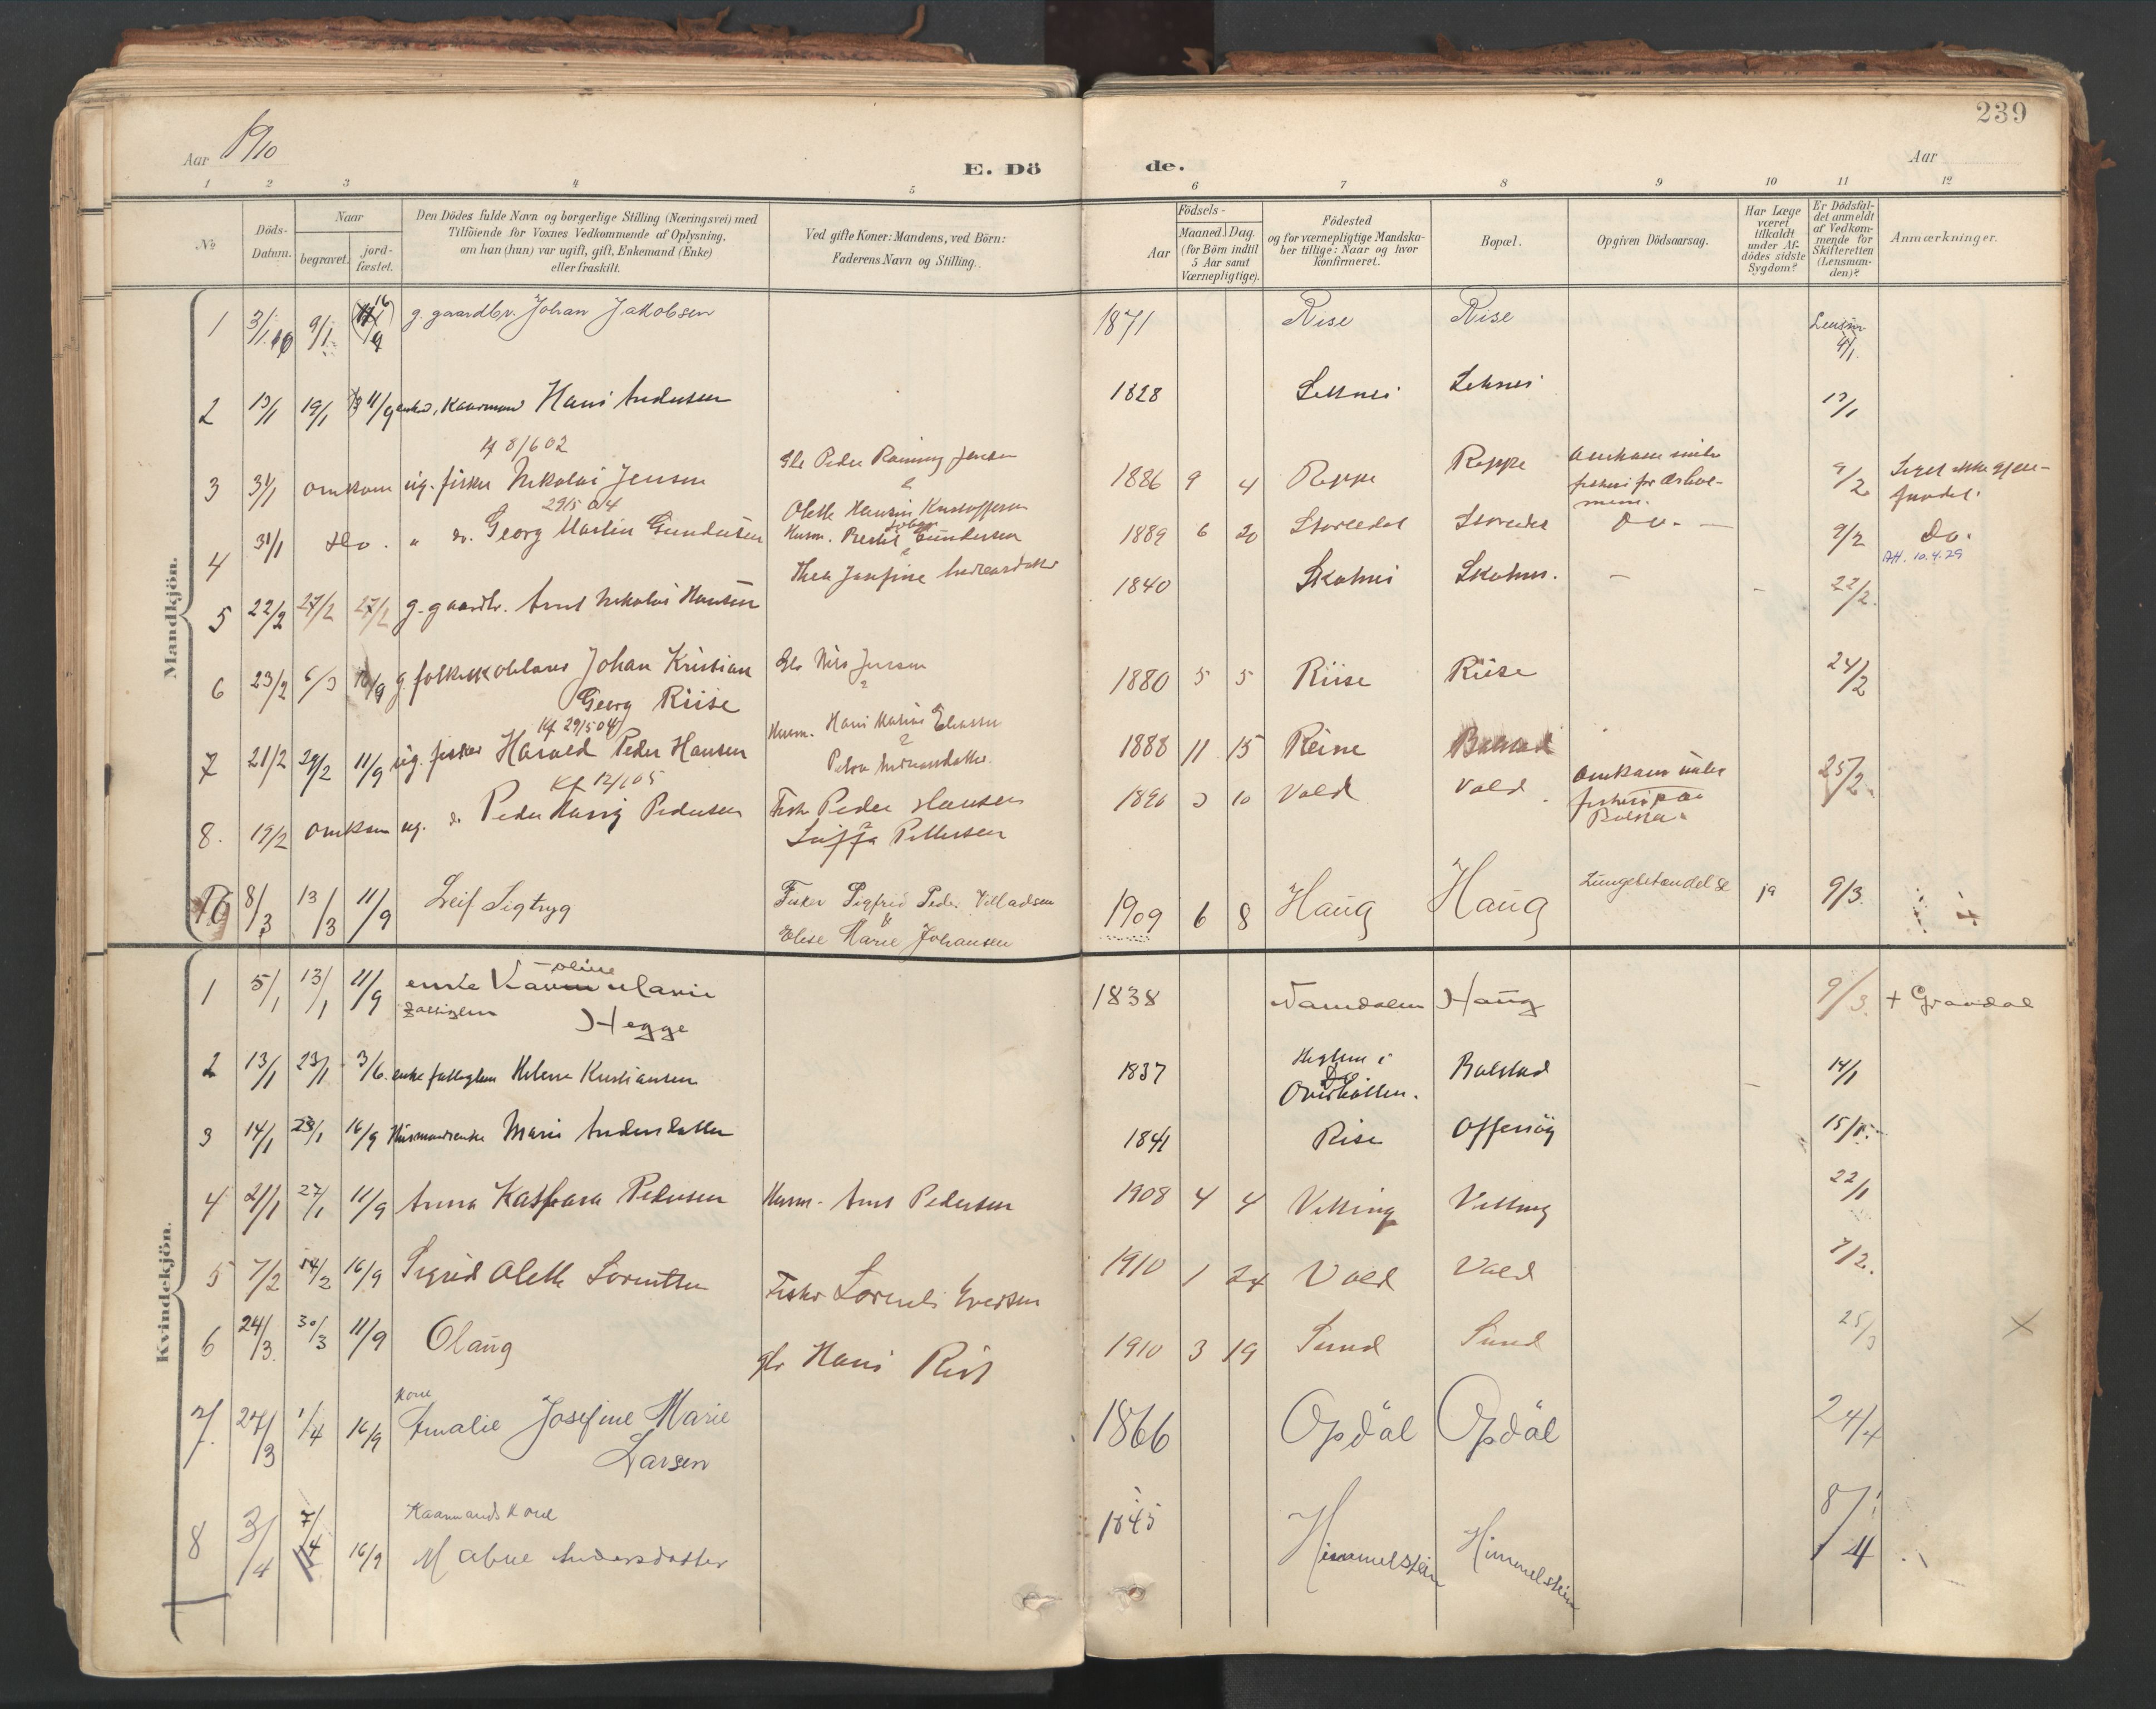 239
Aar 1910
E. Dö de.
Aar
1 2 3 4 5 6 7 8 9 10 11 12
No
Döds-Datum.
Naar
begravet.
jord-fæstet.
Den Dödes fulde Navn og borgerlige Stilling (Næringsvei) med
Tilföiende for Voxnes Vedkommende af Oplysning,
om han (hun) var ugift, gift, Enkemand (Enke)
eller fraskilt.
Ved gifte Koner: Mandens, ved Börn:
Faderens Navn og Stilling.
Födsels-
Aar
Maaned. Dag.
(for Börn indtil
5 Aar samt
Værnepligtige).
Födested
og for værnepligtige Mandska-
ber tillige: Naar og hvor
konfirmeret.
Bopæl.
Opgiven Dödsaarsag.
Har Læge
været
tilkaldt
under Af-
dödes sidste
Sygdom?
Er Dödsfal-
det anmeldt
af Vedkom-
mende for
Skifteretten
(Lensman-
den)?
Anmærkninger.
Mandkjön.
1 3/1 10 9/1 g. gaardbr. Johan Jakobsen 1871 Rise Rise 4/1
2 13/1 19/1 11/9 Kaarmand Hans Andersen 1828 Leknes Leknes 13/1
Kf 8/6 02
3 31/1 omkom ug. fisker Nikolai Jensen Gbr Peder Jensen 1886 9 4 Reppe Reppe omkom under fiskeri 9/2 Liget ikke gjen-
fundet.
29/5 04
4 31/1 do. " do. Georg Martin Gundersen Husm. Johan Gundersen 1889 6 20 Storeidet Storeidet Do. 9/2 Do.
Thea Josefine Andreasdatter
AH. 10.4.29
5 22/2 27/2 27/2 g. gaardbr. Arnt Nikolai Hansen 1840 Skotnes Skotnes. – – 22/2.
6 23/2 6/3 16/9 g. folkeskolelærer Johan Kristian Gbr Nils Jensen 1880 5 5 Riise Riise 24/2
Georg Riise
Kf 29/5 04
7 21/2 29/2 11/9 ug. fisker Harald Peder Hansen Husm. Hans 1888 11 15 Reine 25/2
Petra Andreasdatter
Kf 12/6 05
8. 19/2 omkom ug. d. Peder Pedersen Fisk Peder Hansen 1890 3 10 Vold Vold omkom under
fiskeri paa
Pettersen
8/3 13/3 11/9 Leif Sigtryg Fisker Sigfrid Peder Villadsen 1909 6 8 Haug Haug Lungebetændelse ja 9/3.
&
Elise Marie Johansen
Kvindekjön.
1 5/1 13/1 11/9 enke Karoline Marie 1838 Namdalen Haug 9/3. + Gravdal
Hegge
2 13/1 23/1 3/6. enke fattiglem Helene Kristiansen 1837 i Overhallen. Balstad – 14/1
3 14/1 23/1 16/9 Husmandsenke Marie Andersdatter 1841 Rise Offersöy 15/1.
4 21/1 27/1 11/9 Anna Kaspara Pedersen Husm. Arnt Pedersen 1908 4 4 Vetting Vetting 22/1
5 7/2 14/2 16/9 Sigrid Olette Lorentsen Fisker Lorents Evertsen 1910 1 24 Vold Vold 7/2.
6 24/3. 30/3 11/9 Olaug gbr Hans Rist 1910 3 19 Sund Sund 25/3 X
Kone
7. 27/3 1/4 16/9 Amalie Josefine Marie 1866 Opdöl Opdöl 24/4
Larsen
Kaarmands kone
8 3/4 7/4 16/9 Andersdatter 1845 Himmelstein Himmelstein 8/4